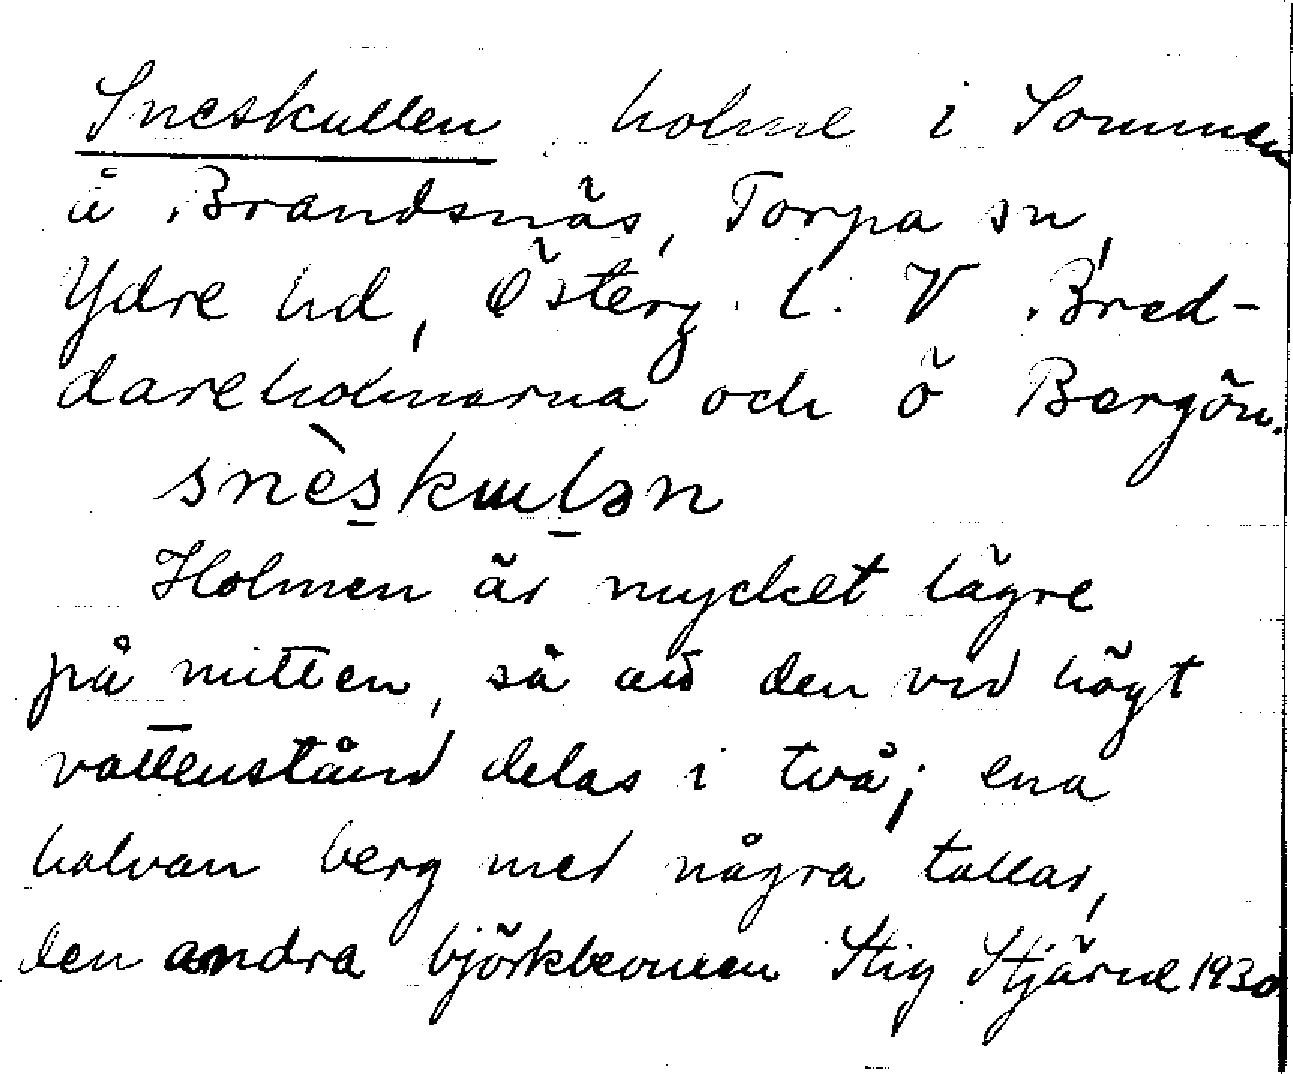 Sneskullen holme i Sommen
å Brandsnäs, Torpa sn,
Ydre hd, Österg. l. V Bred-
dareholmarna och ö Bergön.
snèskɯlən
Holmen är mycket lägre
på mitten, så att den vid högt
vattenstånd delas i två; ena
halvan berg med några tallar,
den andra björkbevuxen Stig Stjärne 1930